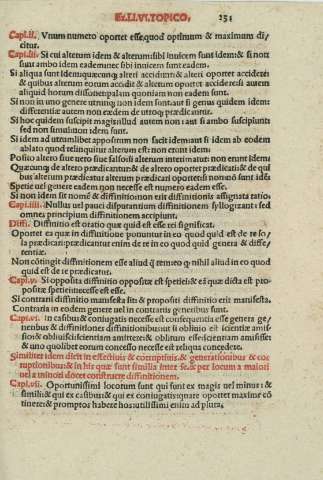 Ex.LI.VI.TOPICO. 251
Capl.ii. Vnum numero oportet esse quod optimum & maximum di/
citur.
Capl.iii. Si cui alterum idem & alterum: sibi inuicem sunt idem: & si nott
sunt ambo idem eademnec sibi inuicem sunt eadem.
Si aliqua sunt Idem: quæcunqȝ alteri accidunt: & alteri oportet accidere:
& quibus alterum eorum accidit & alterum oportet accidere: si autem
aliquid horum differt: palam quoniam non eadem sunt.
Si non in uno genere utrunqȝ non idem sunt: aut si genus quidem idem:
differentiæ autem non eædem de utroqȝ prædicantur.
Si hoc quidem suscipit magis: illud autem non: aut si ambo suscipiunt:
sed non simul: non idem sunt.
Si idem ad utrumlibet appositum non facit idem: aut si idem ab eodem
ablato quod relinquitur alterum est: non erunt idem:
Posito altero siue uero siue falso: si alterum interimatur: non erunt idem:
Quæcunqȝ de altero prædicantur: & de altero oportet prædicari: & de qui
bus alterum prædicatur & alterum prædicari oportet: si non: nō sunt idē
Specie uel genere eadem non necesse est numero eadem esse.
Si non idem sit nomē & diffinitio: non erit diffinitio assignata ratio
Capl.iiii. Nullus uel pauci disputantium diffinitionem syllogizant: sed
omnes principium diffinitionem accipiunt.
Diffi. Diffinitio est oratio quæ quid est esse rei significat.
Oportet ea quæ in diffinitione ponuntur in eo quod quid est de re so/
la prædicari: prædicantur enim de re in eo quod quid genera & diffe/
rentiæ.
Non cōtingit diffinitionem esse aliud
quid est de re prædicatur.
Capl.v. Si opposita diffinitio oppositæ est speciei: & eā quæ dicta est pro/
positæ speciei necesse est esse.
Si contrarii diffinitio manifesta sit: & propositi diffinitio erit manifesta.
Contraria in eodem genere uel in contrariis generibus sunt.
Capl.vi. In casibus & coniugatis necesse est consequentia esse genera ge/
neribus & diffinitiones diffinitionibus: ut si obliuio est scientiæ amissi/
o: & obliuisci: scientiam amittere: & oblitum esse: scientiam amisisse:
& uno quolibet eorum concesso necesse est reliqua concedere.
Similiter idem dicit in effectiuis & corruptiuis: & generationibus & cor
ruptionibus: & in his quæ sunt similia inter se: & per locum a maiori
uel a minori docet construere diffinitionem.
Capl.vii. Oportunissimi locorum sunt qui sunt ex magis uel minus: &
simili: & qui ex casibus: & qui ex coniugatis: quare oportet maxime cō
tinere: & promptos habere hos: utilissimi enim ad plura.